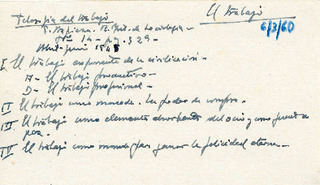 Filosofía del trabajo
El trabajo
6/3/60
Nº 14 - pg. 329 -
Abril-Junio 1946
I. El trabajo exponente de la civilización -
A - El trabajo productivo -
El trabajo profesional -
II El trabajo como moneda. de poder de compra.
III El trabajo como elemento del ocio y como fuente de
paz.
IV El trabajo como moneda para ganar la felicidad eterna.